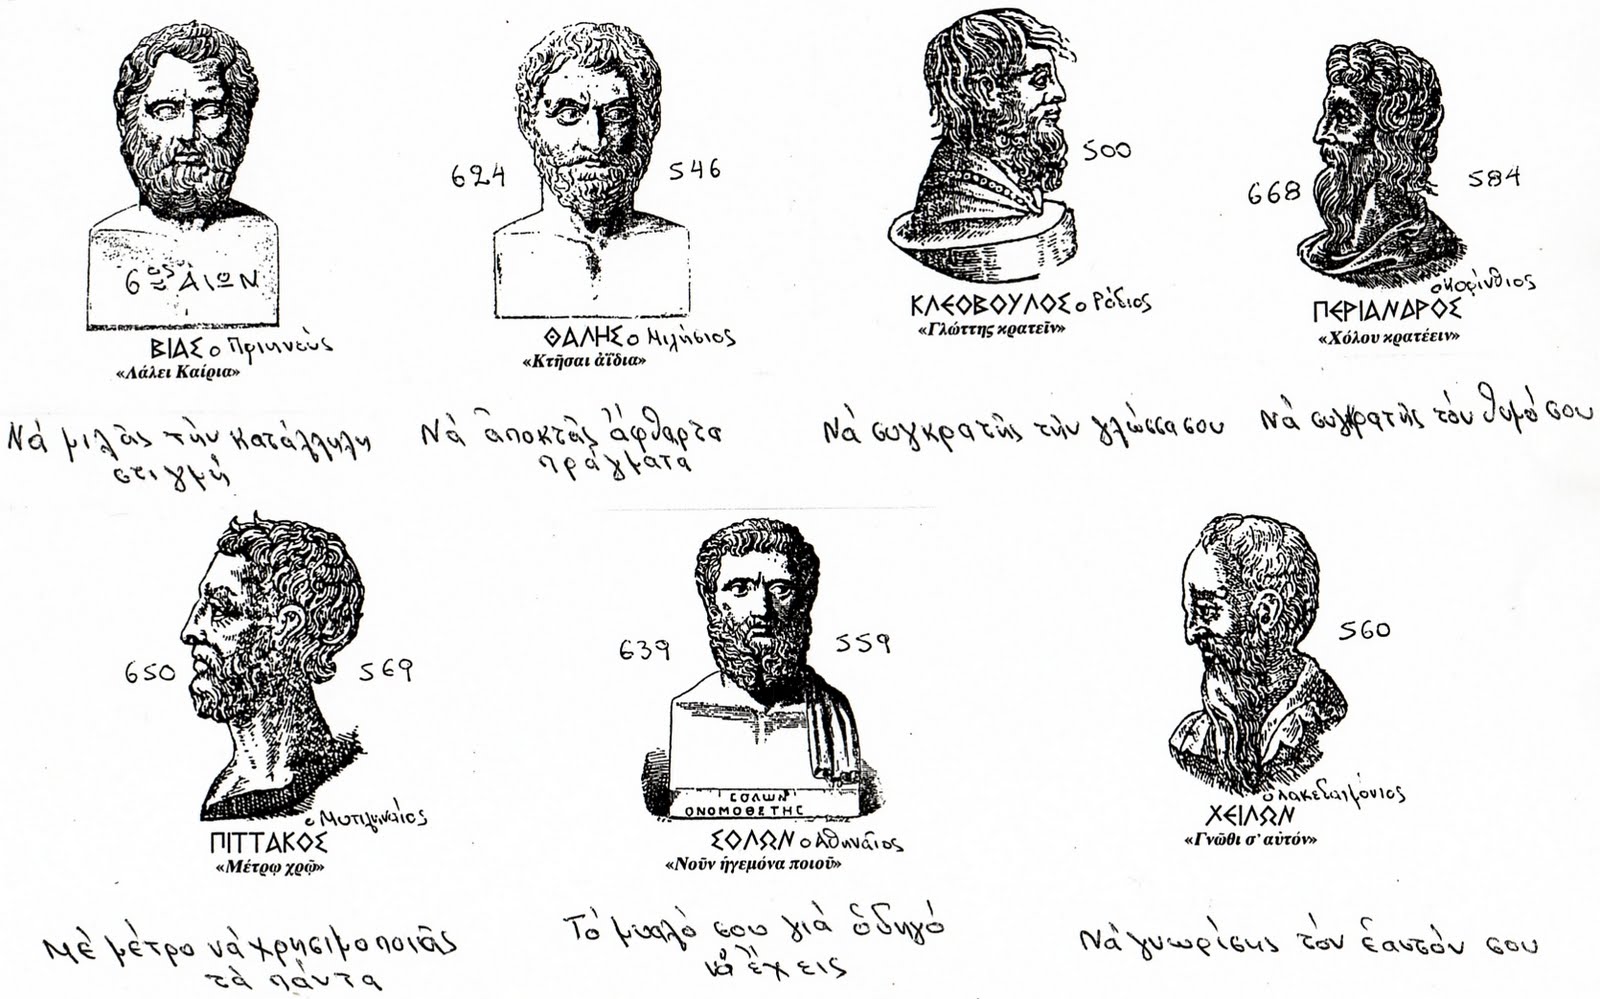 6ος ΑΙΩΝ
ΒΙΑΣ ο Πριηνεύς
«Λάλει Καίρια»
Νά μιλᾶς τήν κατάλληλη
στιγμή
624
546
ΘΑΛΗΣ ο Μιλήσιος
«Κτῆσαι ἀΐδια»
Νά ἀποκτᾶς ἄφθαρτα
πράγματα
500
ΚΛΕΟΒΟΥΛΟΣ ο Ρόδιος
«Γλώττης κρατεῖν»
Νά συγκρατῆς τήν γλῶσσα σου
668
584
ο Κορίνθιος
ΠΕΡΙΑΝΔΡΟΣ
«Χόλου κρατέειν»
Νά συγκρατῆς τόν θυμό σου
650
569
ο Μυτιληναῖος
ΠΙΤΤΑΚΟΣ
«Μέτρῳ χρῶ»
Μέ μέτρο νά χρησιμοποιᾶς
τά πάντα
639
559
ΣΟΛΩΝ
ΟΝΟΜΟΘΕΤΗΣ
ΣΟΛΩΝ ο Αθηναῖος
«Νοῦν ἡγεμόνα ποιοῦ»
Τό μυαλό σου γιά ὁδηγό
νά ἔχεις
560
ο Λακεδαιμόνιος
ΧΕΙΛΩΝ
«Γνῶθι σ' αὐτόν»
Νά γνωρίσης τόν ἑαυτόν σου